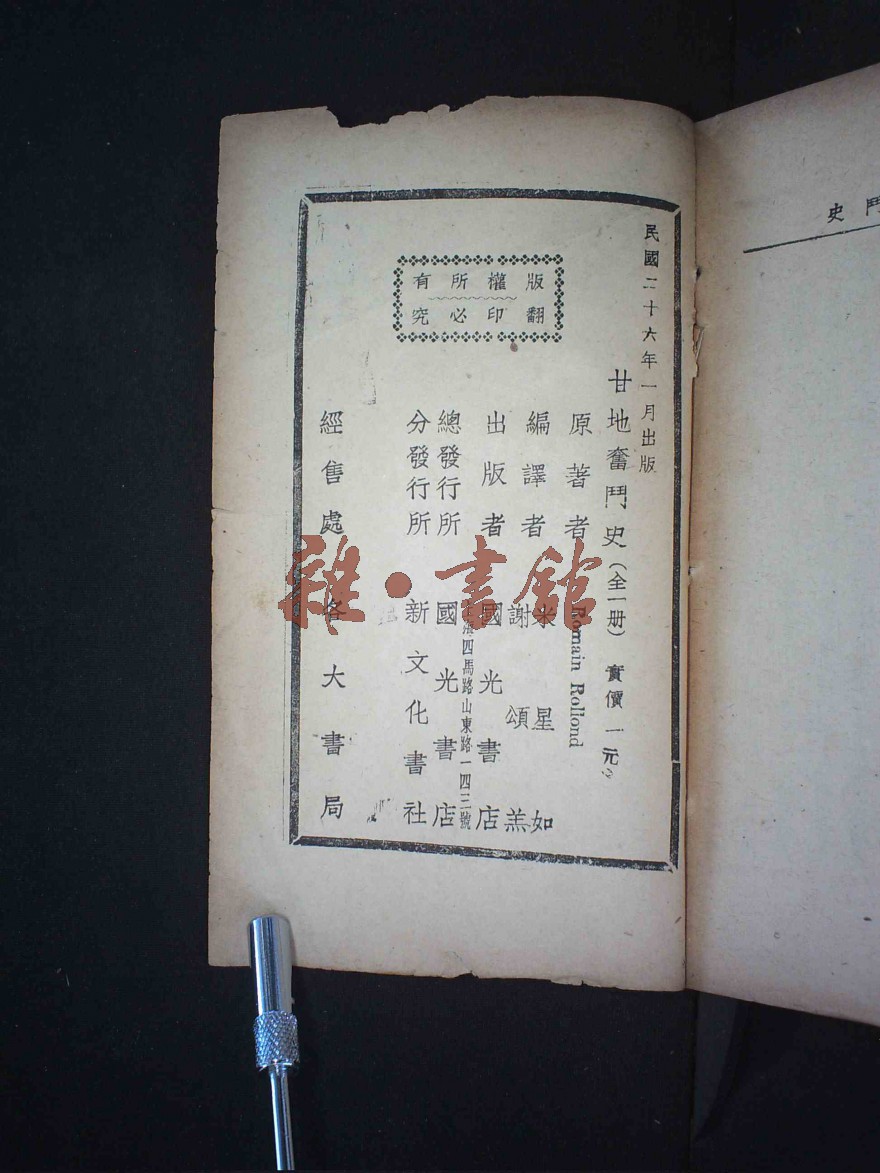 鬥史
民國二十六年一月出版
甘地奮鬥史(全一册) 實價一元
原著者 Romain Rollond
編譯者 米星如
謝頌羔
出版者 國光書店
海四馬路山東路一四三號
總發行所 國光書店
分發行所 新文化書社
經售處 各大書局
版權所有
翻印必究
雜·書館